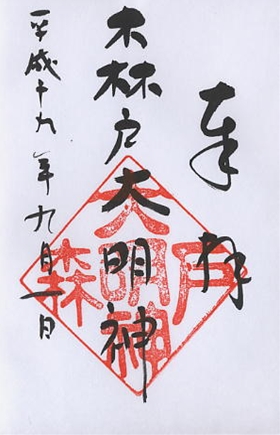 奉拝
森戸大明神
平成十九年九月一日
森戸
大明神